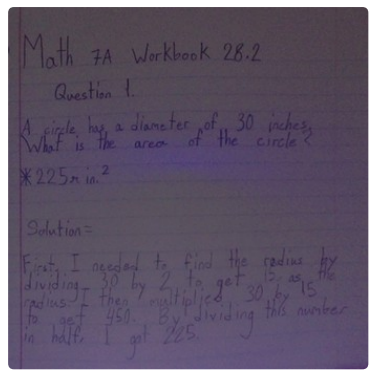 Math 7A Workbook 28.2
Question 1.
A circle has a diameter of 30 inches.
What is the area of the circle?
*225π in.²
Solution=
First, I needed to find the radius by
dividing 30 by 2 to get 15 as the
radius. I then multiplied 30 by 15
to get 450. By dividing this number
in half, I got 225.